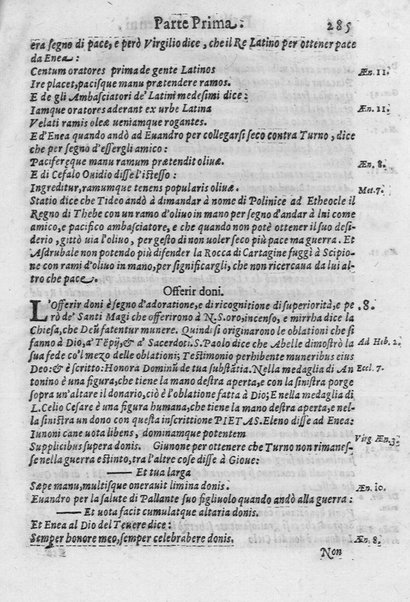 Parte Prima. 285
era segno di pace, e però Virgilio dice, che il Re Latino per ottener pace
da Enea:
Centum oratores prima de gente Latinos Æn. 11.
Ire placet, pacisque manu prætendere ramos.
E de gli Ambasciatori de' Latini medesimi dice:
Iamque oratores aderant ex urbe Latina Æn. 11.
Velati ramis oleæ veniamque rogantes.
E d'Enea quando andò ad Euandro per collegarsi seco contra Turno, dice
che per segno d'essergli amico:
Paciferæque manu ramum prætendit oliuæ. Æn. 8.
E di Cefalo Ouidio disse l'istesso:
Ingreditur, ramumque tenens popularis oliuæ. Met. 7.
Statio dice che Tideo andò à dimandar à nome di Polinice ad Etheocle il
Regno di Thebe con un ramo d'oliuo in mano per segno d'andar à lui come
amico, e pacifico ambasciatore, e che quando non potè ottener il suo desi-
derio, gittò uia l'oliuo, per gesto di non uoler seco più pace ma guerra. Et
Asdrubale non potendo più difender la Rocca di Cartagine fuggì à Scipio-
ne con rami d'oliuo in mano, per significargli, che non ricercaua da lui al-
tro che pace.
Offerir doni.
L'Offerir doni è segno d'adoratione, e di ricognitione di superiorità, e pe 8.
rò de' Santi Magi che offerirono à N.S. oro, incenso, e mirrha dice la
Chiesa, che Deū fatentur munere. Quindi si originarono le oblationi che si
fanno à Dio, à Tēpij, & à Sacerdoti. S. Paolo dice che Abelle dimostrò la Ad Heb. 2.
sua fede co'l mezo delle oblationi; Testimonio perhibente muneribus eius
Deo: & è scritto: Honora Dominū de tua substātia. Nella medaglia di An Eccl. 7.
tonino è una figura, che tiene la mano destra aperta, e con la sinistra porge
sopra un'altare il donario, ciò è l'oblatione fatta à Dio; E nella medaglia di
L. Celio Cesare è una figura humana, che tiene la mano destra aperta, e nel-
la sinistra un dono con questa inscrittione PIETAS. Eleno disse ad Enea:
Iunoni cane uota libens, dominamque potentem Virg Æn. 3.
Supplicibus supera donis. Giunone per ottenere che Turno non rimanes-
se nella guerra estinto, tra l'altre cose disse à Gioue:
— Et tua larga
Sæpe manu, multisque oneraui limina donis. Æn. 10.
Euandro per la salute di Pallante suo figliuolo quando andò alla guerra:
— Et uota facit cumulatque altaria donis.
Et Enea al Dio del Teuere dice:
Semper honore meo, semper celebrabere donis. Æn. 8.
Non